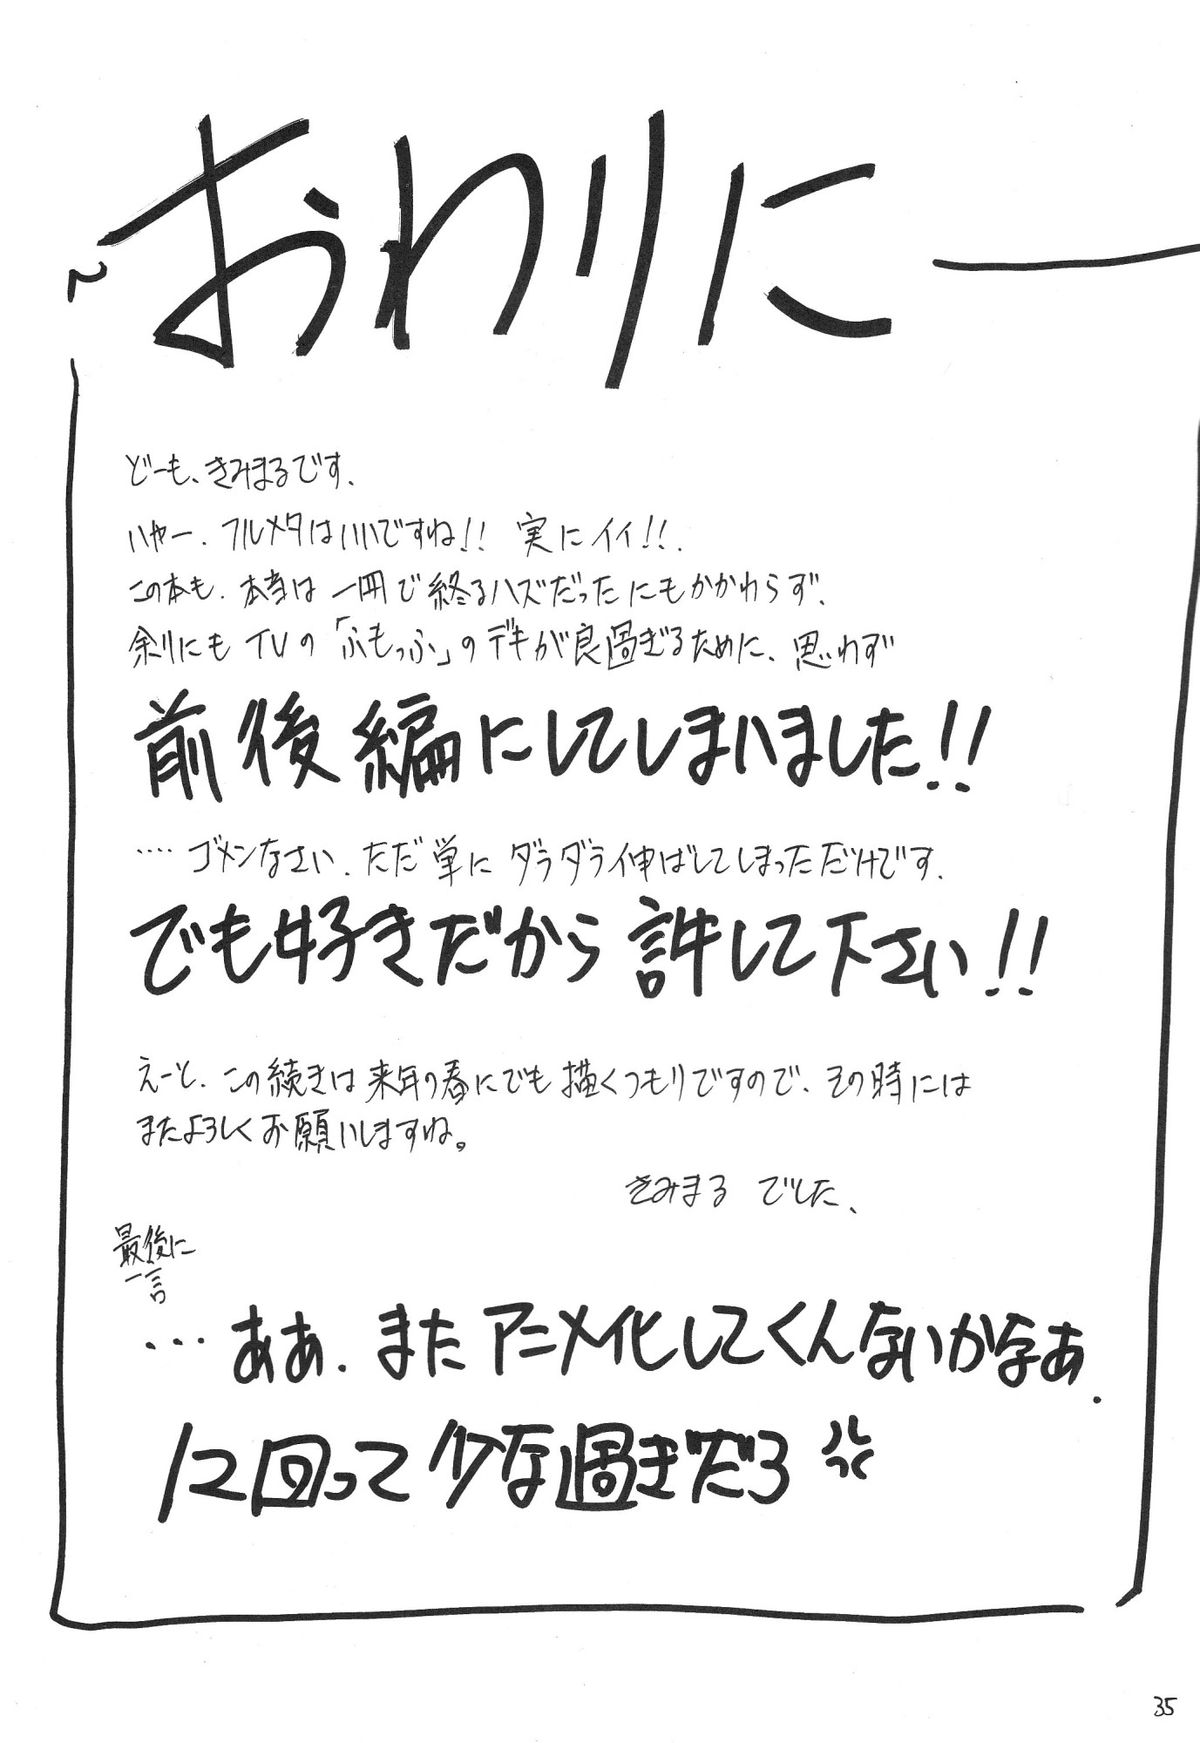 おわりに
どーも、きみまるです。
いやー、フルメタはいいですね!! 実にイイ!!
この本も、本当は一冊で終るハズだったにもかかわらず、
余りにもTVの「ふもっふ」のデキが良過ぎるために、思わず
前後編にしてしまいました!!
‥‥ゴメンなさい、ただ単にダラダラ伸ばしてしまっただけです。
でも好きだから許して下さい!!
えーと、この続きは来年の春にでも描くつもりですので、その時には
またよろしくお願いしますね。
きみまるでした、
最後に
一言
…ああ、またアニメ化してくんないかなあ.
12回って少な過ぎだろ
35